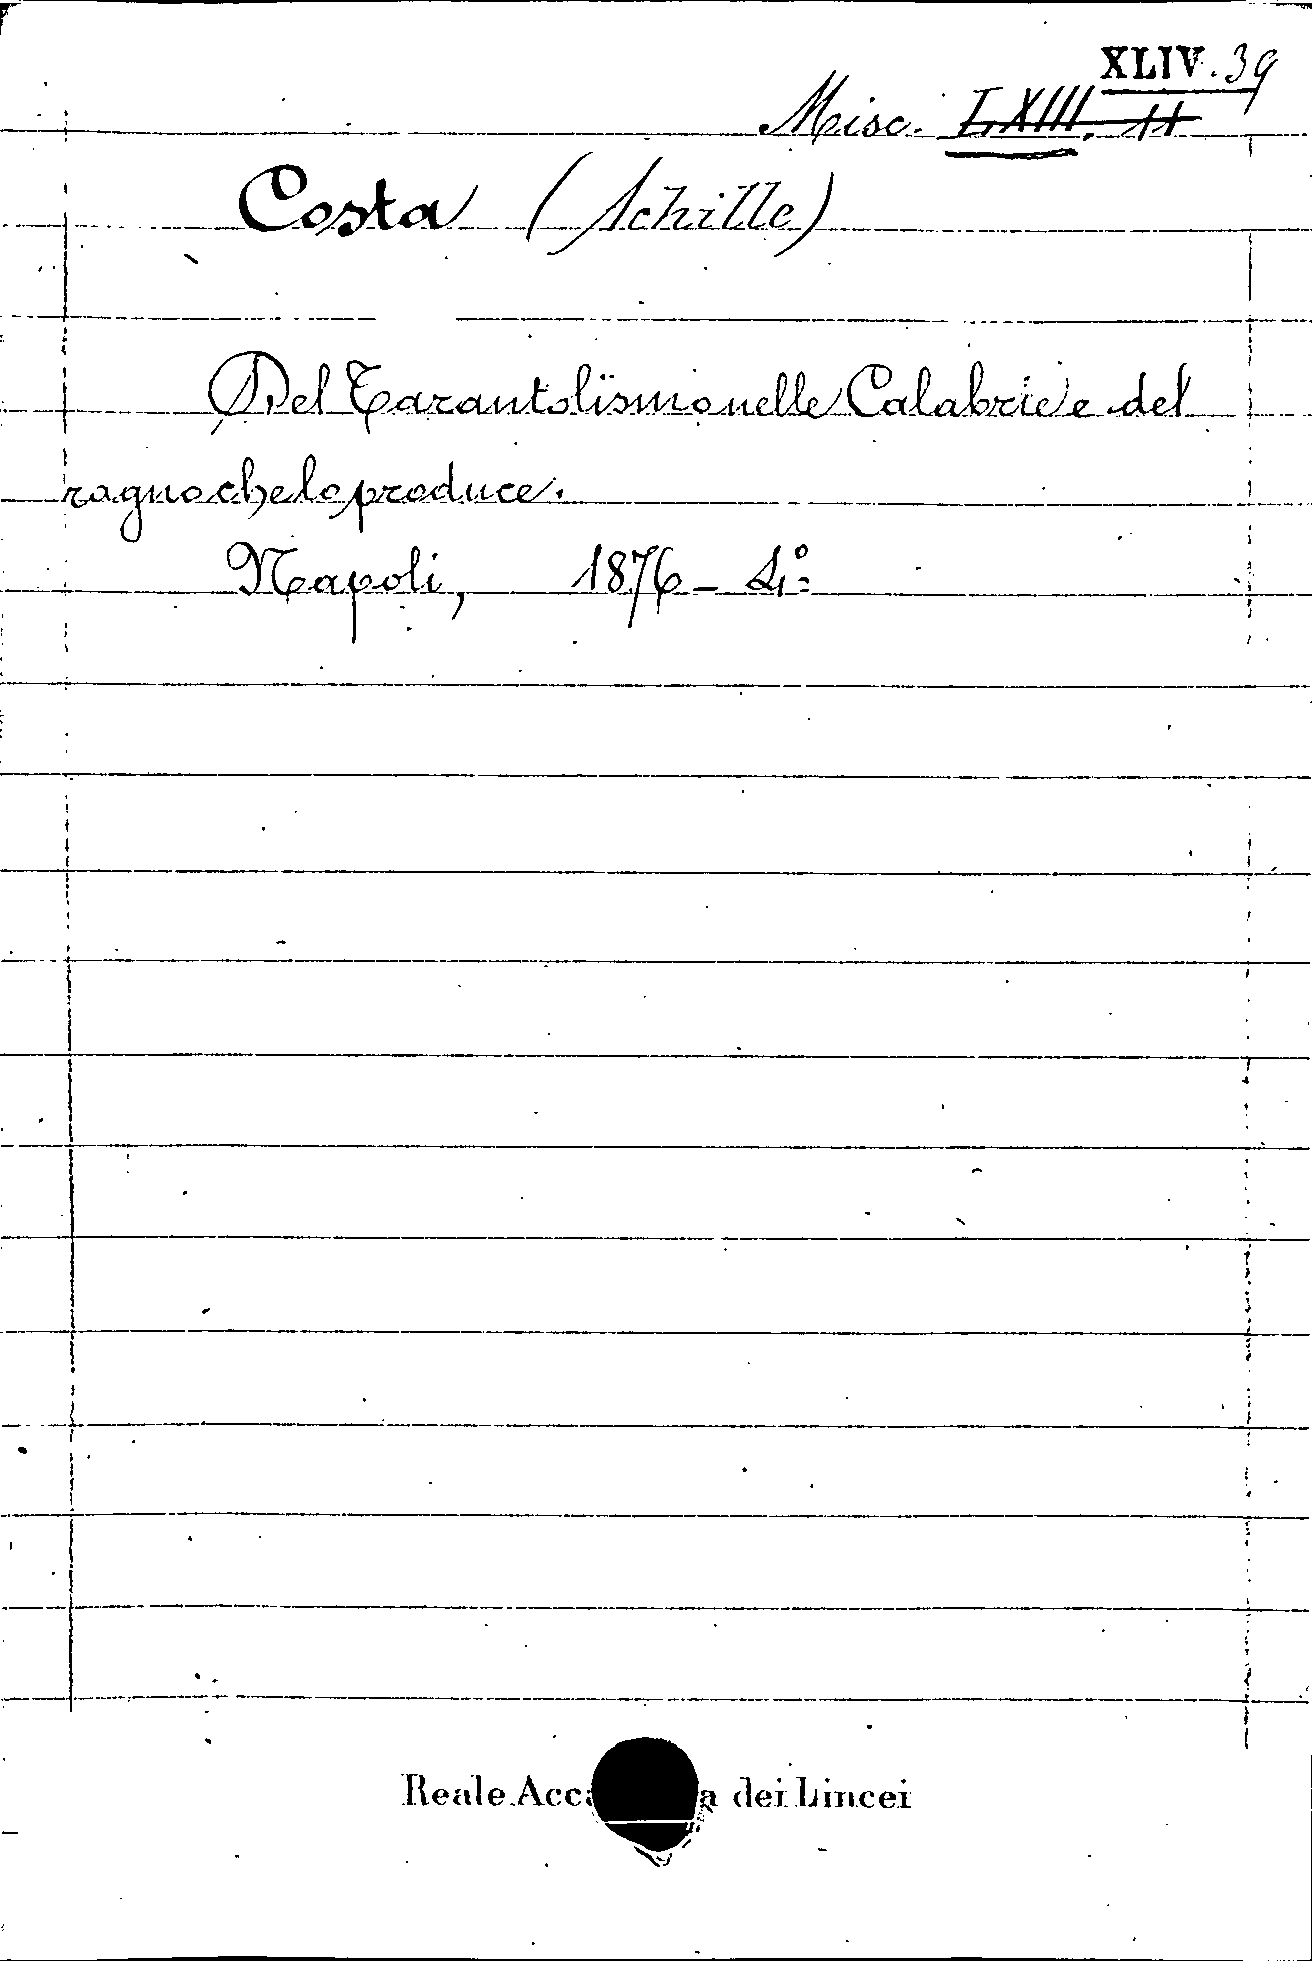 XLIV. 39
Misc. LXIII. 11
Costa (Achille)
Del Tarantolismo nelle Calabrie e del
ragno che lo produce.
Napoli, 1876 - 4º
Reale Acca a dei Lincei